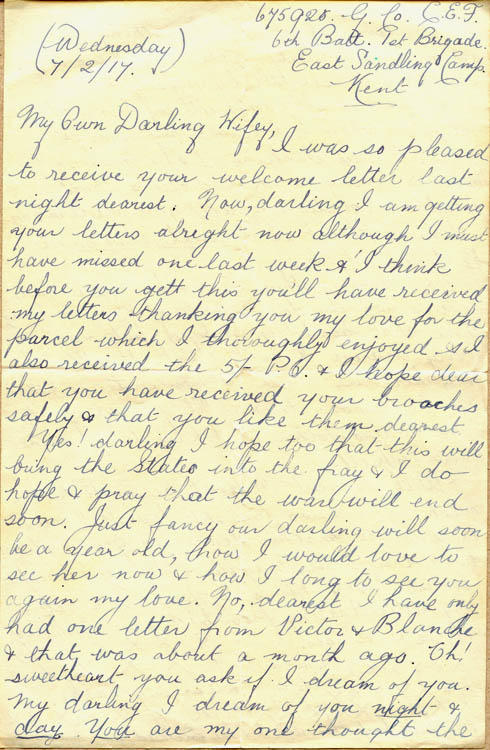 675920. G. Co. C.E.F.
(Wednesday) 6th Batt. 1st Brigade.
7/2/17. East Sandling Camp.
Kent
My Own Darling Wifey,
I was so pleased
to receive your welcome letter last
night dearest. Now, darling I am getting
your letters alright now although I must
have missed one last week & I think
before you gett this you'll have received
my letters thanking you my love for the
parcel which I thoroughly enjoyed & I
also received the 5/- P.O. & I hope dear
that you have received your broaches
safely & that you like them dearest.
Yes! darling I hope too that this will
bring the States into the fray & I do
hope & pray that the war will end
soon. Just fancy our darling will soon
be a year old, how I would love to
see her now & how I long to see you
again my love. No, dearest I have only
had one letter from Victor & Blanche
& that was about a month ago. Oh!
sweetheart you ask if I dream of you.
My darling I dream of you night &
day. You are my one thought the